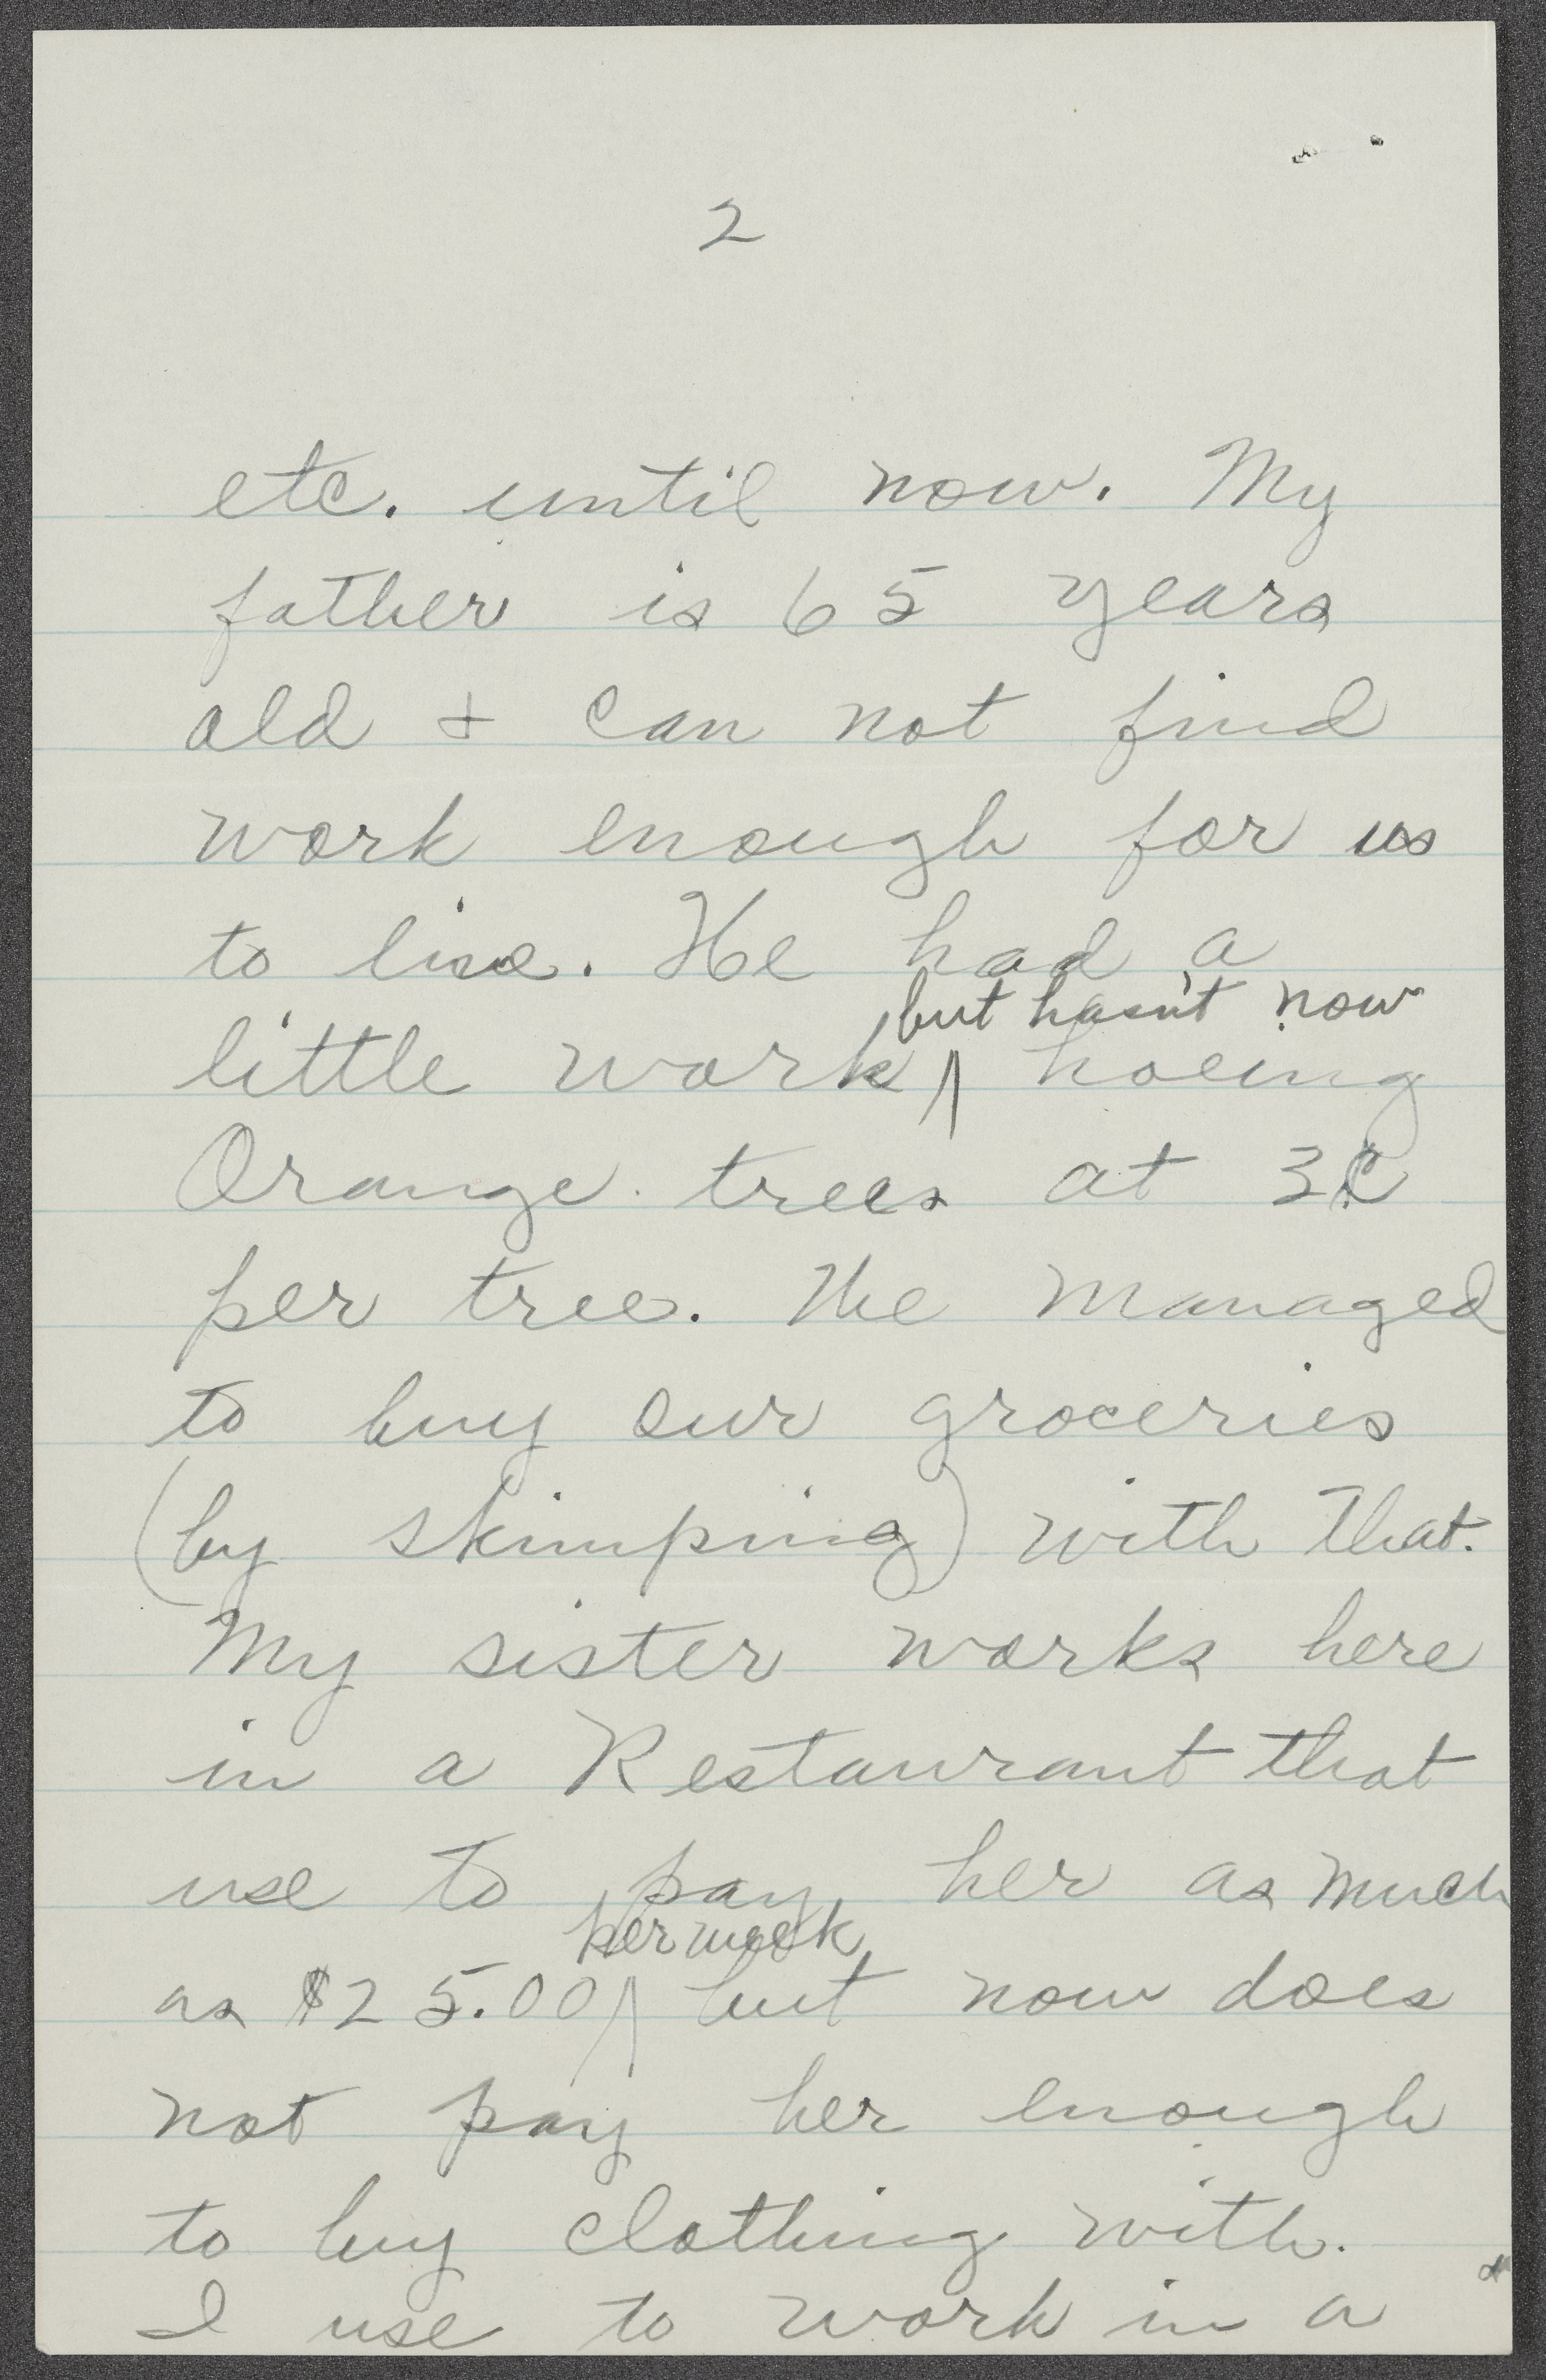 2
etc. until now. My
father is 65 years
old & can not find
work enough for us
to live. He had a
but hasn't now
little work /\ hoeing
Orange trees at 3¢
per tree. We managed
to buy our groceries
(by skimping) with that.
My sister works here
in a Restaurant that
use to pay her as much
per week
as $25.00 /\ but now does
not pay her enough
to buy clothing with.
I use to work in a